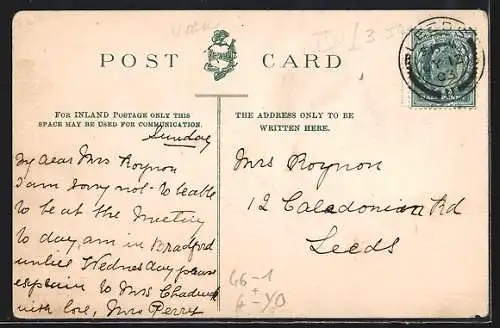 POST CARD
LEEDS
FOR INLAND POSTAGE ONLY THIS
SPACE MAY BE USED FOR COMMUNICATION.
THE ADDRESS ONLY TO BE
WRITTEN HERE.
Sunday
My dear Mrs Roynon
I am sorry not to be able
to be at the Meeting
to day, am in Bradford
until Wednesday please
explain to Mrs Chadwick
with love, Mrs Perry
Mrs Roynon
12 Caledonian Rd
Leeds